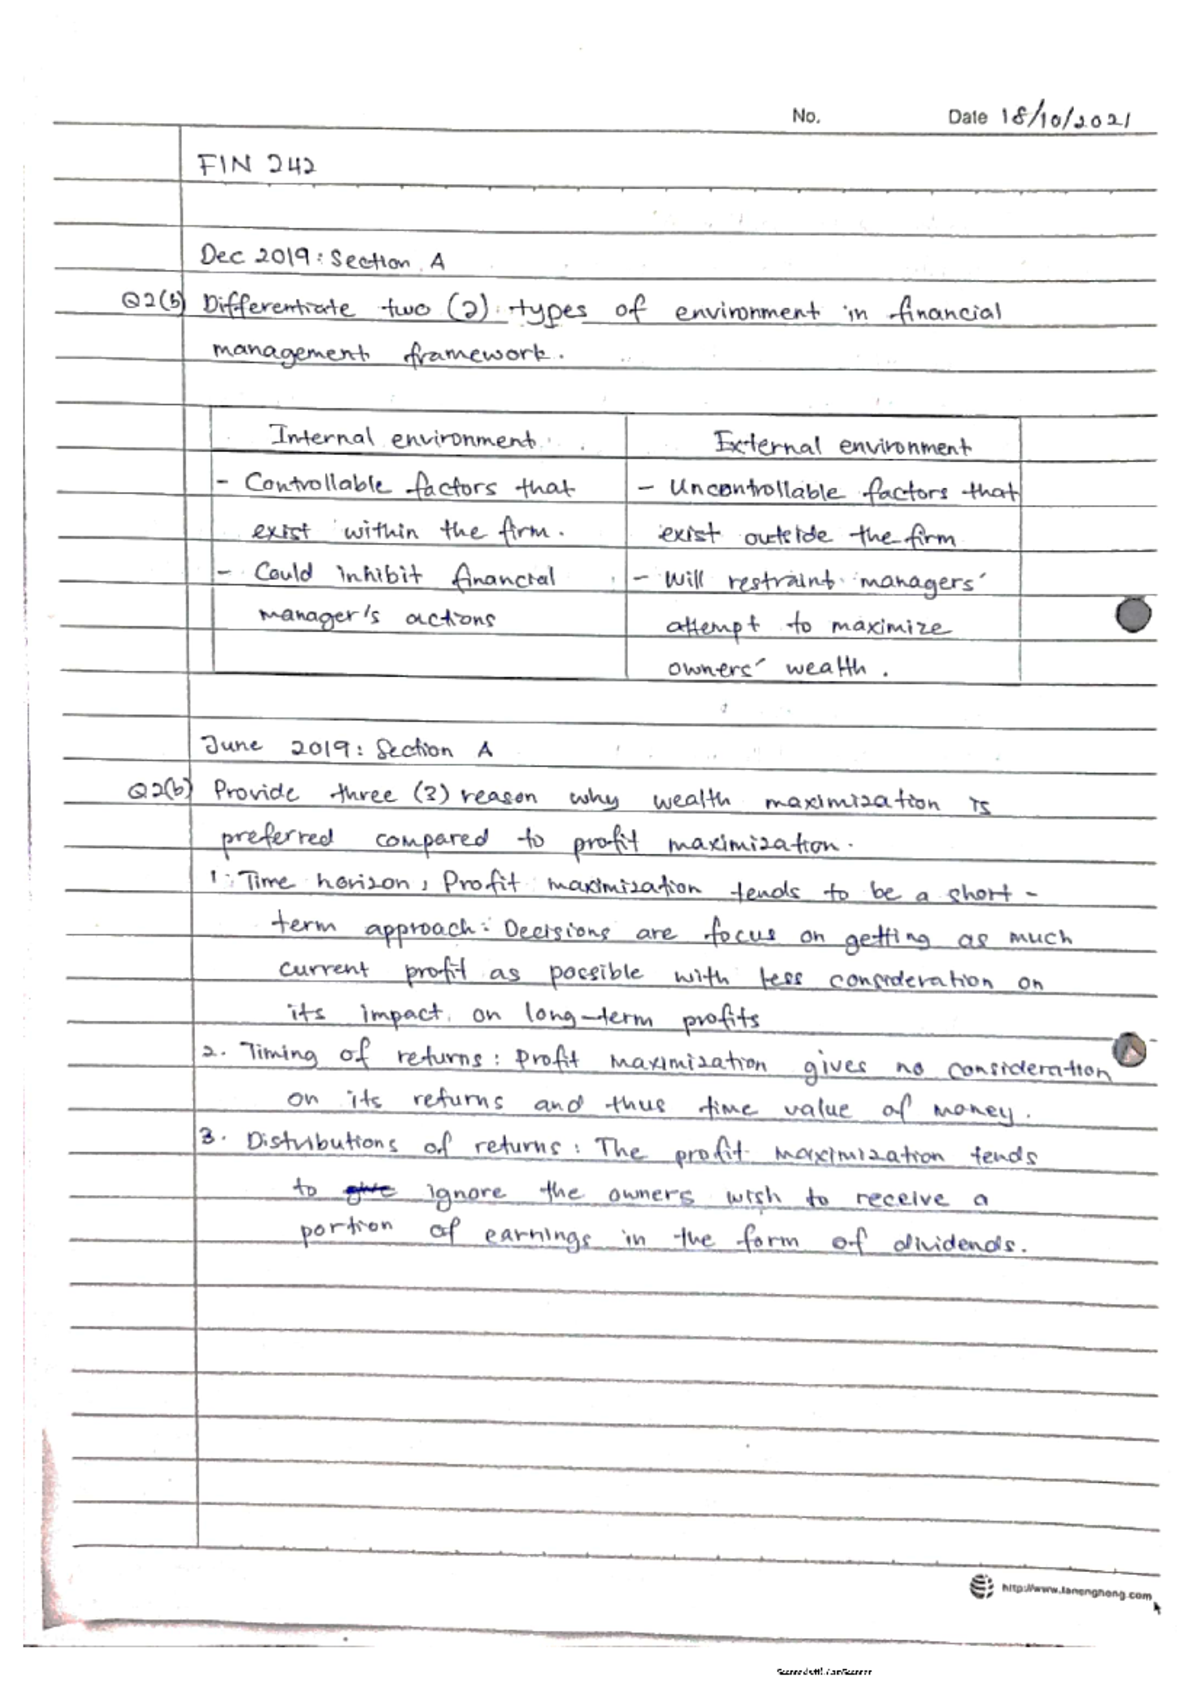 No. Date 18/10/2021
FIN 242
Dec 2019: Section A
Q2(b) Differentiate two (2) types of environment in financial
management framework.
Internal environment
- Controllable factors that
exist within the firm.
- Could inhibit financial
manager's actions
External environment
- Uncontrollable factors that
exist outside the firm
- Will restraint managers'
attempt to maximize
owners' wealth.
June 2019: Section A
Q2(b) Provide three (3) reason why wealth maximization is
preferred compared to profit maximization.
1. Time horizon, Profit maximization tends to be a short-
term approach: Decisions are focus on getting as much
current profit as possible with less consideration on
its impact on long-term profits
2. Timing of returns: Profit maximization gives no consideration
on its returns and thus time value of money.
3. Distributions of returns: The profit maximization tends
to give ignore the owners wish to receive a
portion of earnings in the form of dividends.
http://www.tanenghong.com